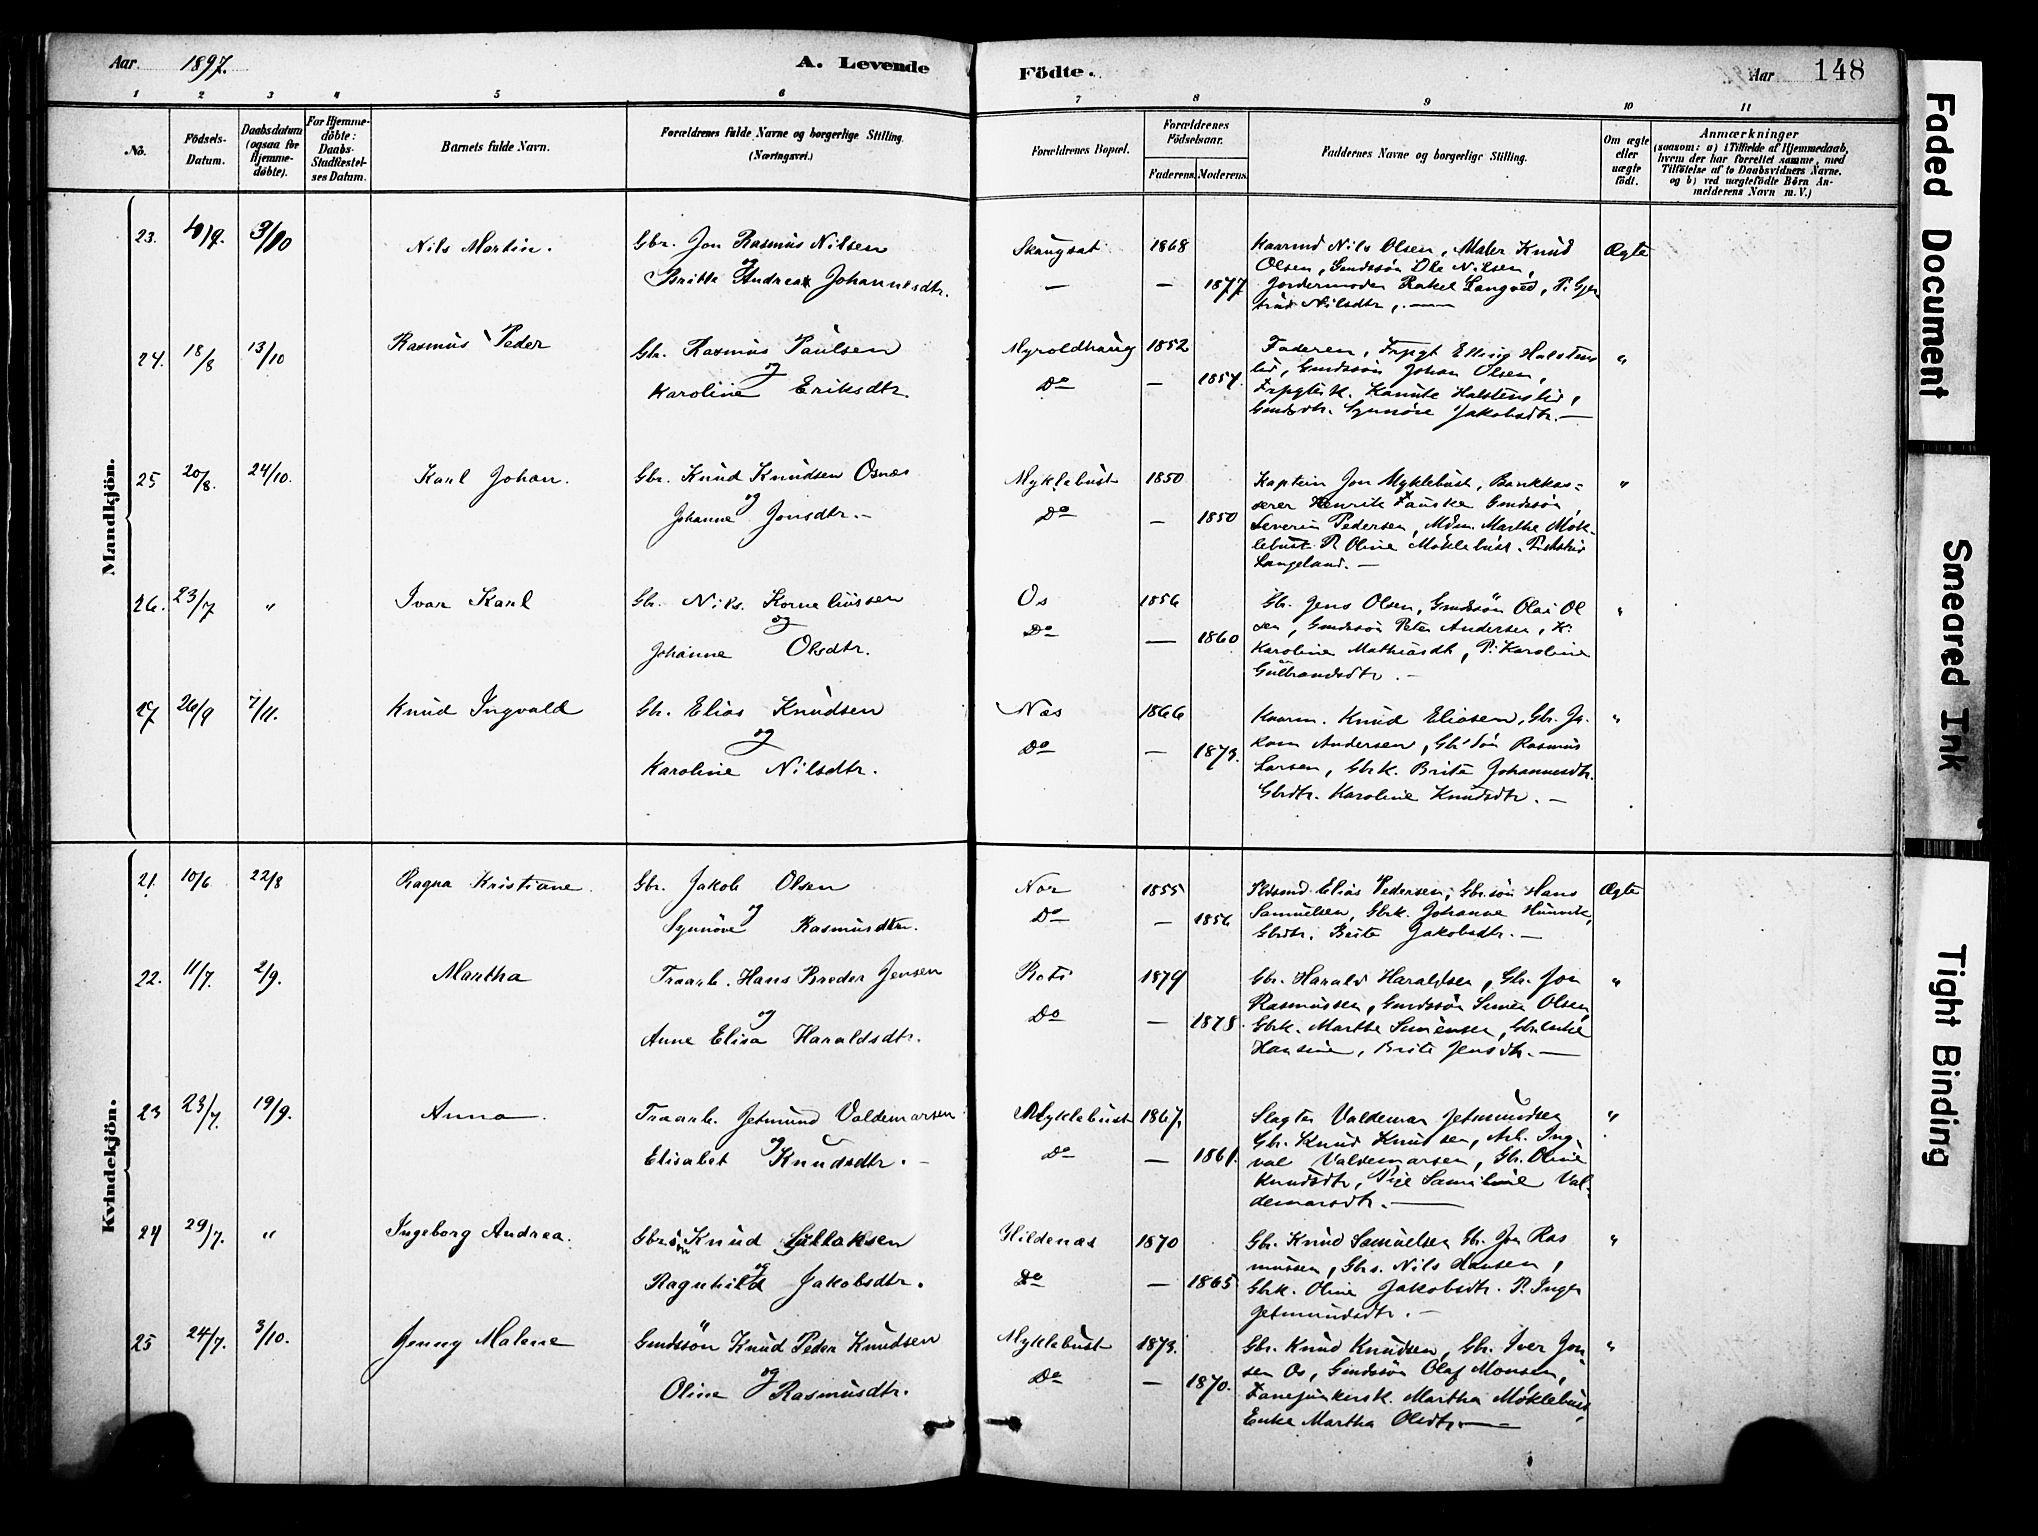 Aar. 1897. A. Levende Födte. Aar 148
1 2 3 4 5 6 7 8 9 10 11
No.
Födsels-Datum.
Daabsdatum (ogsaa for Hjemmedöbte).
For Hjemmedöbte: Daabs-Stadfæstelses Datum.
Barnets fulde Navn.
Forældrenes fulde Navne og borgerlige Stilling. (Næringsvei.)
Forældrenes Bopæl.
Forældrenes Födselsaar.
Faderens. Moderens.
Faddernes Navne og borgerlige Stilling.
Om ægte eller uægte födt.
Anmærkninger
(saasom: a) i Tilfælde af Hjemmedaab,
hvem der har forrettet samme, med
Tilföielse af to Daabsvidners Navne.
og b) ved uægtefödte Börn An-
melderens Navn m. V.)
Mandkjön.
23. 3/10 Nils Martin. Gbr. Jon Rasmus Nilsen
og
Britte Andrea Johannesdtr.
Skaugsat 1868
— — 1877
Kaarmd Nils Olsen, Maler Knud
Olsen, Gmdssön Ole Nilsen,
Jordermoder Rakel Langved, P. Gjer
trud Nilsdtr, —
Ægte
24. 18/8 13/10 Rasmus Peder Gbr. Rasmus Paulsen
og
Karoline Eriksdtr.
Myroldhaug 1852
Do — 1857.
Faderen, Frpgt Elling Halstens
lid, Gmdssön Johan Olsen,
Frpgtsk. Kanute Halstenslid,
Gmdsdtr. Synnöve Jakobsdtr. —
"
25 20/8. 24/10. Karl Johan. Gbr. Knud Knudsen Osnæs
og
Johanne Jonsdtr. —
Myklebust 1850
Do — 1850
Kaptein Jon Myklebust, Bankkas=
serer Henrik Fauske Gmdssön
Severin Pedersen, Mdm. Marthe Mök-
lebust P. Oline Möklebust. P.
Langeland. —
"
26. 23/7 " Ivar Karl Gbr. Nils Korneliussen
og
Johanne Olsdtr.
Os 1856
Do — 1860
Gbr. Jens Olsen, Gmdssön Olai Ol
sen, Gmdssön Peter Andersen, K.
Karoline Mathiasdt, P. Karoline
Gulbrandsdtr. —
"
27 26/9 7/11. Knud Ingvald Gbr. Elias Knudsen
og
Karoline Nilsdtr.
Næs 1866
Do — 1873.
Kaarm. Knud Eliasen, Gbr. Ja-
kom Andersen, Gbr sön Rasmus
Larsen, Gbrk. Brite Johannesdtr.
Gbrdtr. Karoline Knudsdtr. —
"
Kvindekjön.
21. 10/6 22/8 Ragna Kristiane. Gbr. Jakob Olsen
og
Synnöve Rasmusdtr.
Nor 1855
Do — 1856
Elias Pedersen, Gbr.sön Hans
Samuelsen, Gbrk. Johanne
Gbrdtr. Brite Jakobsdtr. —
Ægte
22. 11/7. 2/9. Martha Traarb. Hans Breder Jensen
og
Anne Elisa Haraldsdtr.
1879
Do — 1878.
Gbr. Harald Haraldsen, Gbr. Jon
Rasmussen, Gmdssön Simen Olsen
Gbrk. Marthe Simensen, Gbr.enke
Hansine, Brite Jensdtr. —
"
23 23/7. 19/9. Anna Traarb. Jetmund Valdemarsen
og
Elisabet Knudsdtr. —
Myklebust 1867.
Do — 1861.
Slagter Valdemar Jetmundsen
Gbr. Knud Knudsen, Arb. Ing-
val Valdemarsen, Gbr. Oline
Knudsdtr, Pige Val-
demarsdtr. —
"
24 29/7. " Ingeborg Andrea. Gbrsön Knud Syllaksen
og
Ragnhild Jakobsdtr.
Hildenæs 1870
Do — 1865
Gbr. Knud Samuelsen Gbr. Jon Ras
mussen, Gbrs. Nils Hansen,
Gbrk. Oline Jakobsdtr. P. Inger
Jetmundsdtr. —
"
25 24/7. 3/10. Jenny Malene Gmdssön Knud Peder Knudsen
og
Oline Rasmusdtr.
Myklebust 1873.
Do — 1870.
Gbr. Knud Knudsen, Gbr. Iver Jon-
sen Os, Gmdssön Olaf Monsen,
Fanejunkersk. Martha Möklebust,
Enke Martha Olsdtr. —
"
Faded Document
Smeared Ink
Tight Binding